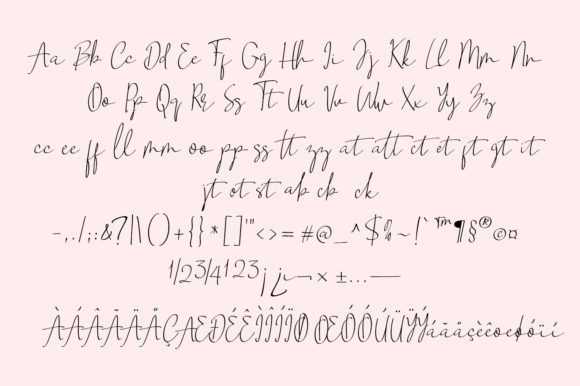 Aa Bb Cc Dd Ee Ff Gg Hh Ii Jj Kk Ll Mm Nn
Oo Pp Qq Rr Ss Tt Uu Vv Ww Xx Yy Zz
cc ee ff ll mm oo pp ss tt zz at att ct et ft gt it
jt ot st ab cb ck
-,./;:&?|\()+{}*[]'"<>=#@_^$%~!`™¶§®©¤
1/23/4123¡¿¬×±…—
ÀÁÂÃÄÅÇÆÐÉÊÌÎÍÏØŒÓÔÚÜŸÝáãåçèêoeøóïí